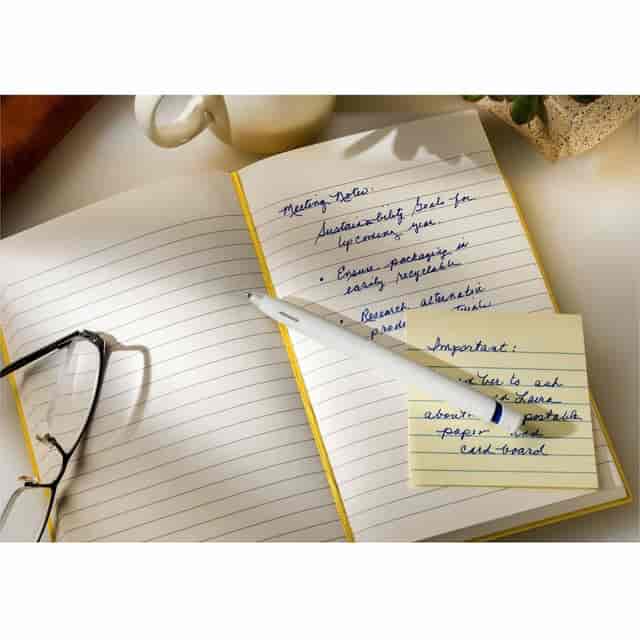 Meeting Notes:
Sustainability Goals for
Upcoming year
• Ensure packaging is
easily recyclable
• Research alternative
Important:
to ask
Laura
about
paper and
cardboard